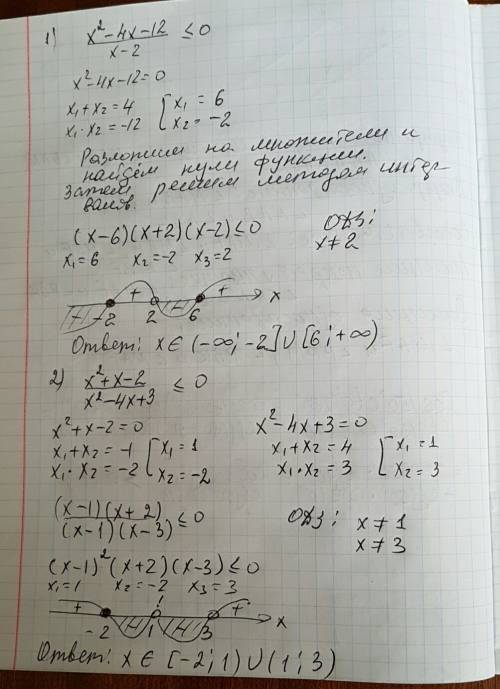 1) x²-4x-12 / x-2 ≤ 0
x²-4x-12=0
x₁+x₂=4 [x₁=6
x₁·x₂=-12 [x₂=-2
Разложим на множители и
найдём нули функции.
Затем решим методом интер-
валов.
(x-6)(x+2)(x-2)≤0 ОДЗ:
x₁=6 x₂=-2 x₃=2 x≠2
- + - + x
-2 2 6
Ответ: x∈(-∞;-2]∪[6;+∞)
2) x²+x-2 / x²-4x+3 ≤ 0
x²+x-2=0 x²-4x+3=0
x₁+x₂=-1 [x₁=1 x₁+x₂=4 [x₁=1
x₁·x₂=-2 [x₂=-2 x₁·x₂=3 [x₂=3
(x-1)(x+2) / (x-1)(x-3) ≤0 ОДЗ: x≠1
x≠3
(x-1)²(x+2)(x-3)≤0
x₁=1 x₂=-2 x₃=3
+ - ! - + x
-2 1 3
Ответ: x∈[-2;1)∪(1;3)